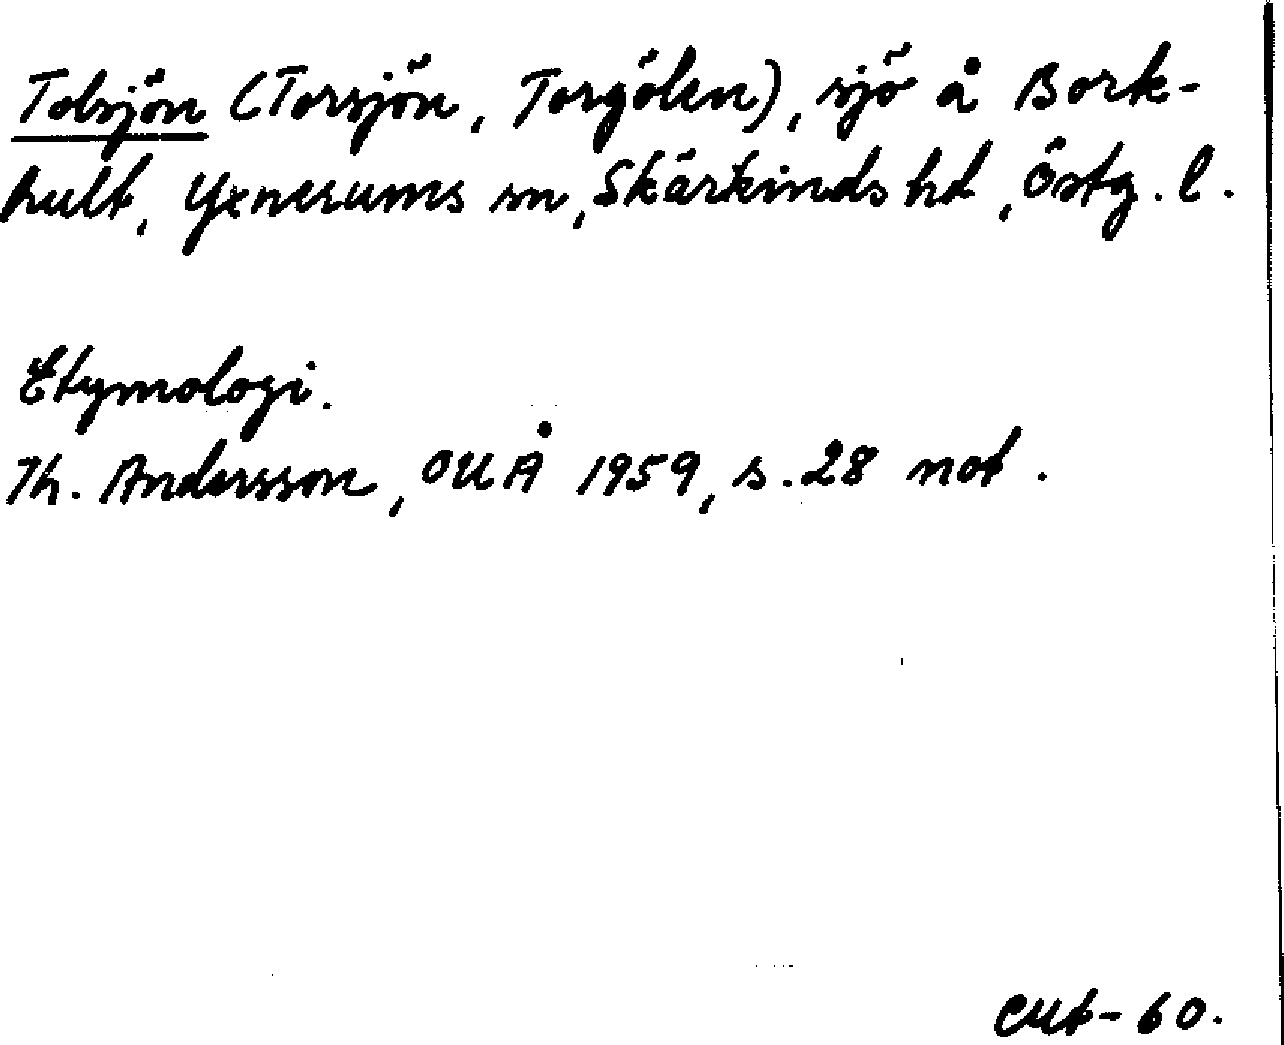 Tolsjön (Torsjön, Torgölen), sjö å Bork-
hult, Yxnerums sn, Skärkinds hd, Östg. l.
Etymologi.
Th. Andersson, OUÅ 1959, s. 28 not.
-60.